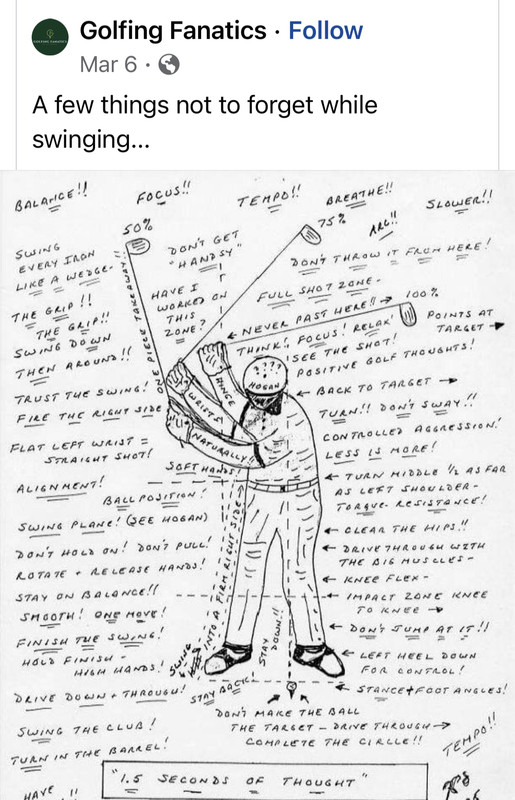 Golfing Fanatics · Follow
Mar 6
A few things not to forget while
swinging...
BALANCE!!
FOCUS!!
TEMPO!!
BREATHE!!
SLOWER!!
50%
75%
ARC!!
SWING
EVERY IRON
LIKE A WEDGE-
DON'T GET
"HANDSY"
DON'T THROW IT FROM HERE!
ONE PIECE TAKEAWAY!!
HAVE I
WORKED ON
THIS
ZONE?
FULL SHOT ZONE-
100%
THE GRIP!!
THE GRIP!!
← NEVER PAST HERE!! →
POINTS AT
TARGET →
SWING DOWN
THEN AROUND!!
THINK!, FOCUS! RELAX
! SEE THE SHOT!
POSITIVE GOLF THOUGHTS!
????
HOGAN
HINGE
WRISTS
NATURALLY!!
TRUST THE SWING!
FIRE THE RIGHT SIDE
← BACK TO TARGET →
TURN!! DON'T SWAY!!
FLAT LEFT WRIST =
STRAIGHT SHOT!
CONTROLLED AGGRESSION!
LESS IS MORE!
SOFT HANDS!
ALIGNMENT!
BALL POSITION!
← TURN MIDDLE 1/2 AS FAR
AS LEFT SHOULDER-
TORQUE - RESISTANCE!
SWING PLANE! (SEE HOGAN)
← CLEAR THE HIPS!!
DON'T HOLD ON! DON'T PULL!
← DRIVE THROUGH WITH
THE BIG MUSCLES-
ROTATE + RELEASE HANDS!
← KNEE FLEX-
STAY ON BALANCE!!
← IMPACT ZONE KNEE
TO KNEE →
SMOOTH! ONE MOVE!
INTO A FIRM RIGHT SIDE
STAY DOWN!!
← DON'T JUMP AT IT!!
FINISH THE SWING!
HOLD FINISH -
HIGH HANDS!
SWING
← LEFT HEEL DOWN
FOR CONTROL!
DRIVE DOWN + THROUGH!
STAY BACK!
← STANCE + FOOT ANGLES!
DON'T MAKE THE BALL
THE TARGET - DRIVE THROUGH →
COMPLETE THE CIRCLE!!
SWING THE CLUB!
TURN IN THE BARREL!
TEMPO!!
"1.5 SECONDS OF THOUGHT"
HAVE